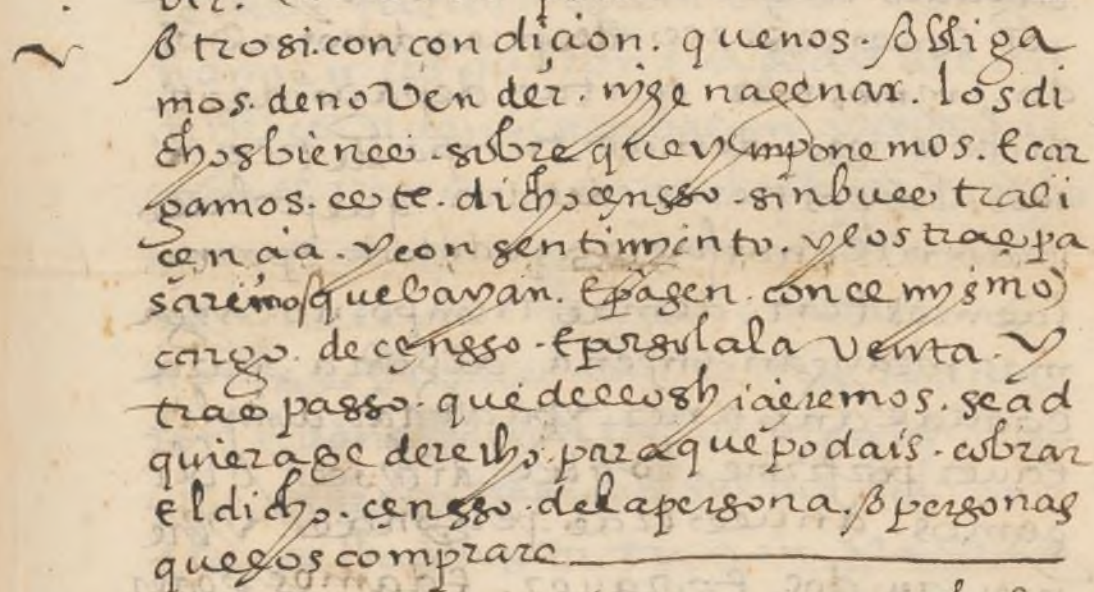 Otrosi. con condiçion. que nos. obliga
mos. de no vender. ny enagenar. los di
chos bienes. sobre que ynponemos. E car
gamos. este. dicho çensso. sin vuestra li
cençia. y consentimiento. y los traspa
saremos que bayan. E pasen. con el mysmo
cargo. de çensso. E por solo la venta. y
traspasso. que dellos hiçieremos. se ad
quiera se derecho. para que podais. cobrar
El dicho. çensso. de la persona. o personas
que los comprare